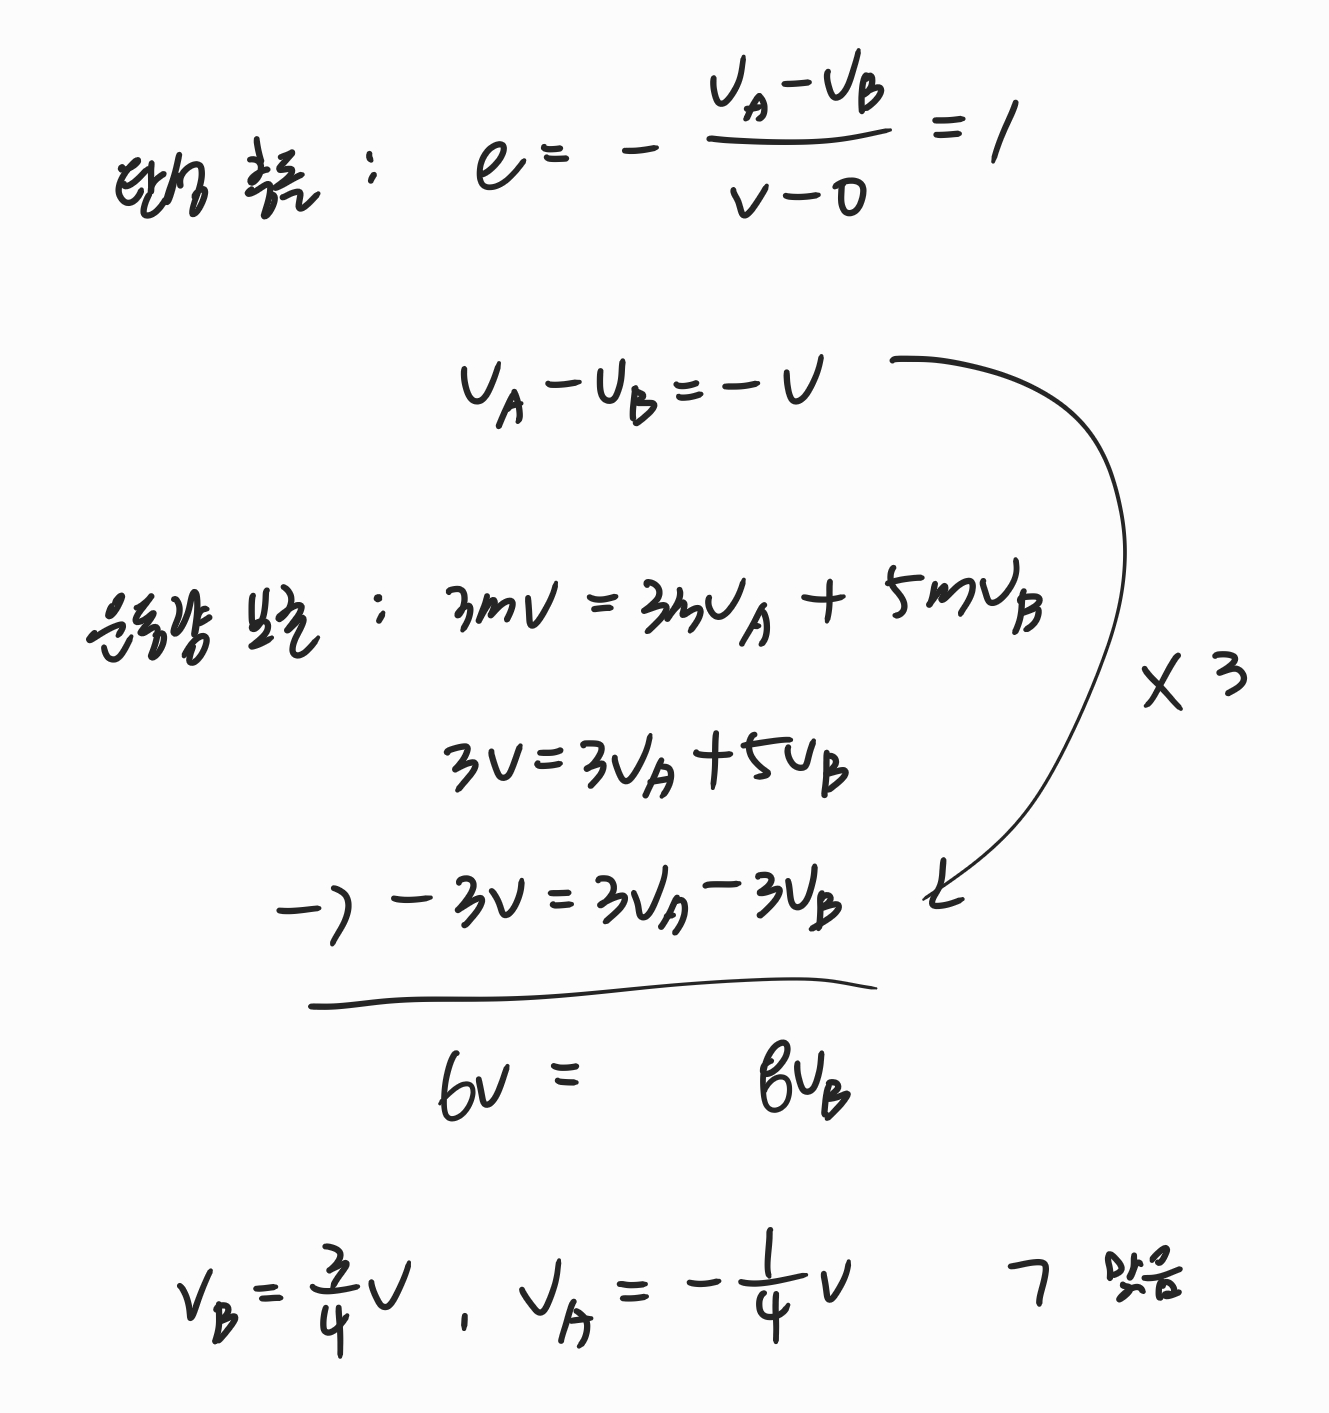 탄성 충돌 : e = - (v_A - v_B)/(v - 0) = 1
v_A - v_B = - v
운동량 보존 : 3mv = 3mv_A + 5mv_B
× 3
3v = 3v_A + 5v_B
-) - 3v = 3v_A - 3v_B
6v = 8v_B
v_B = 3/4 v , v_A = - 1/4 v ㄱ 맞음